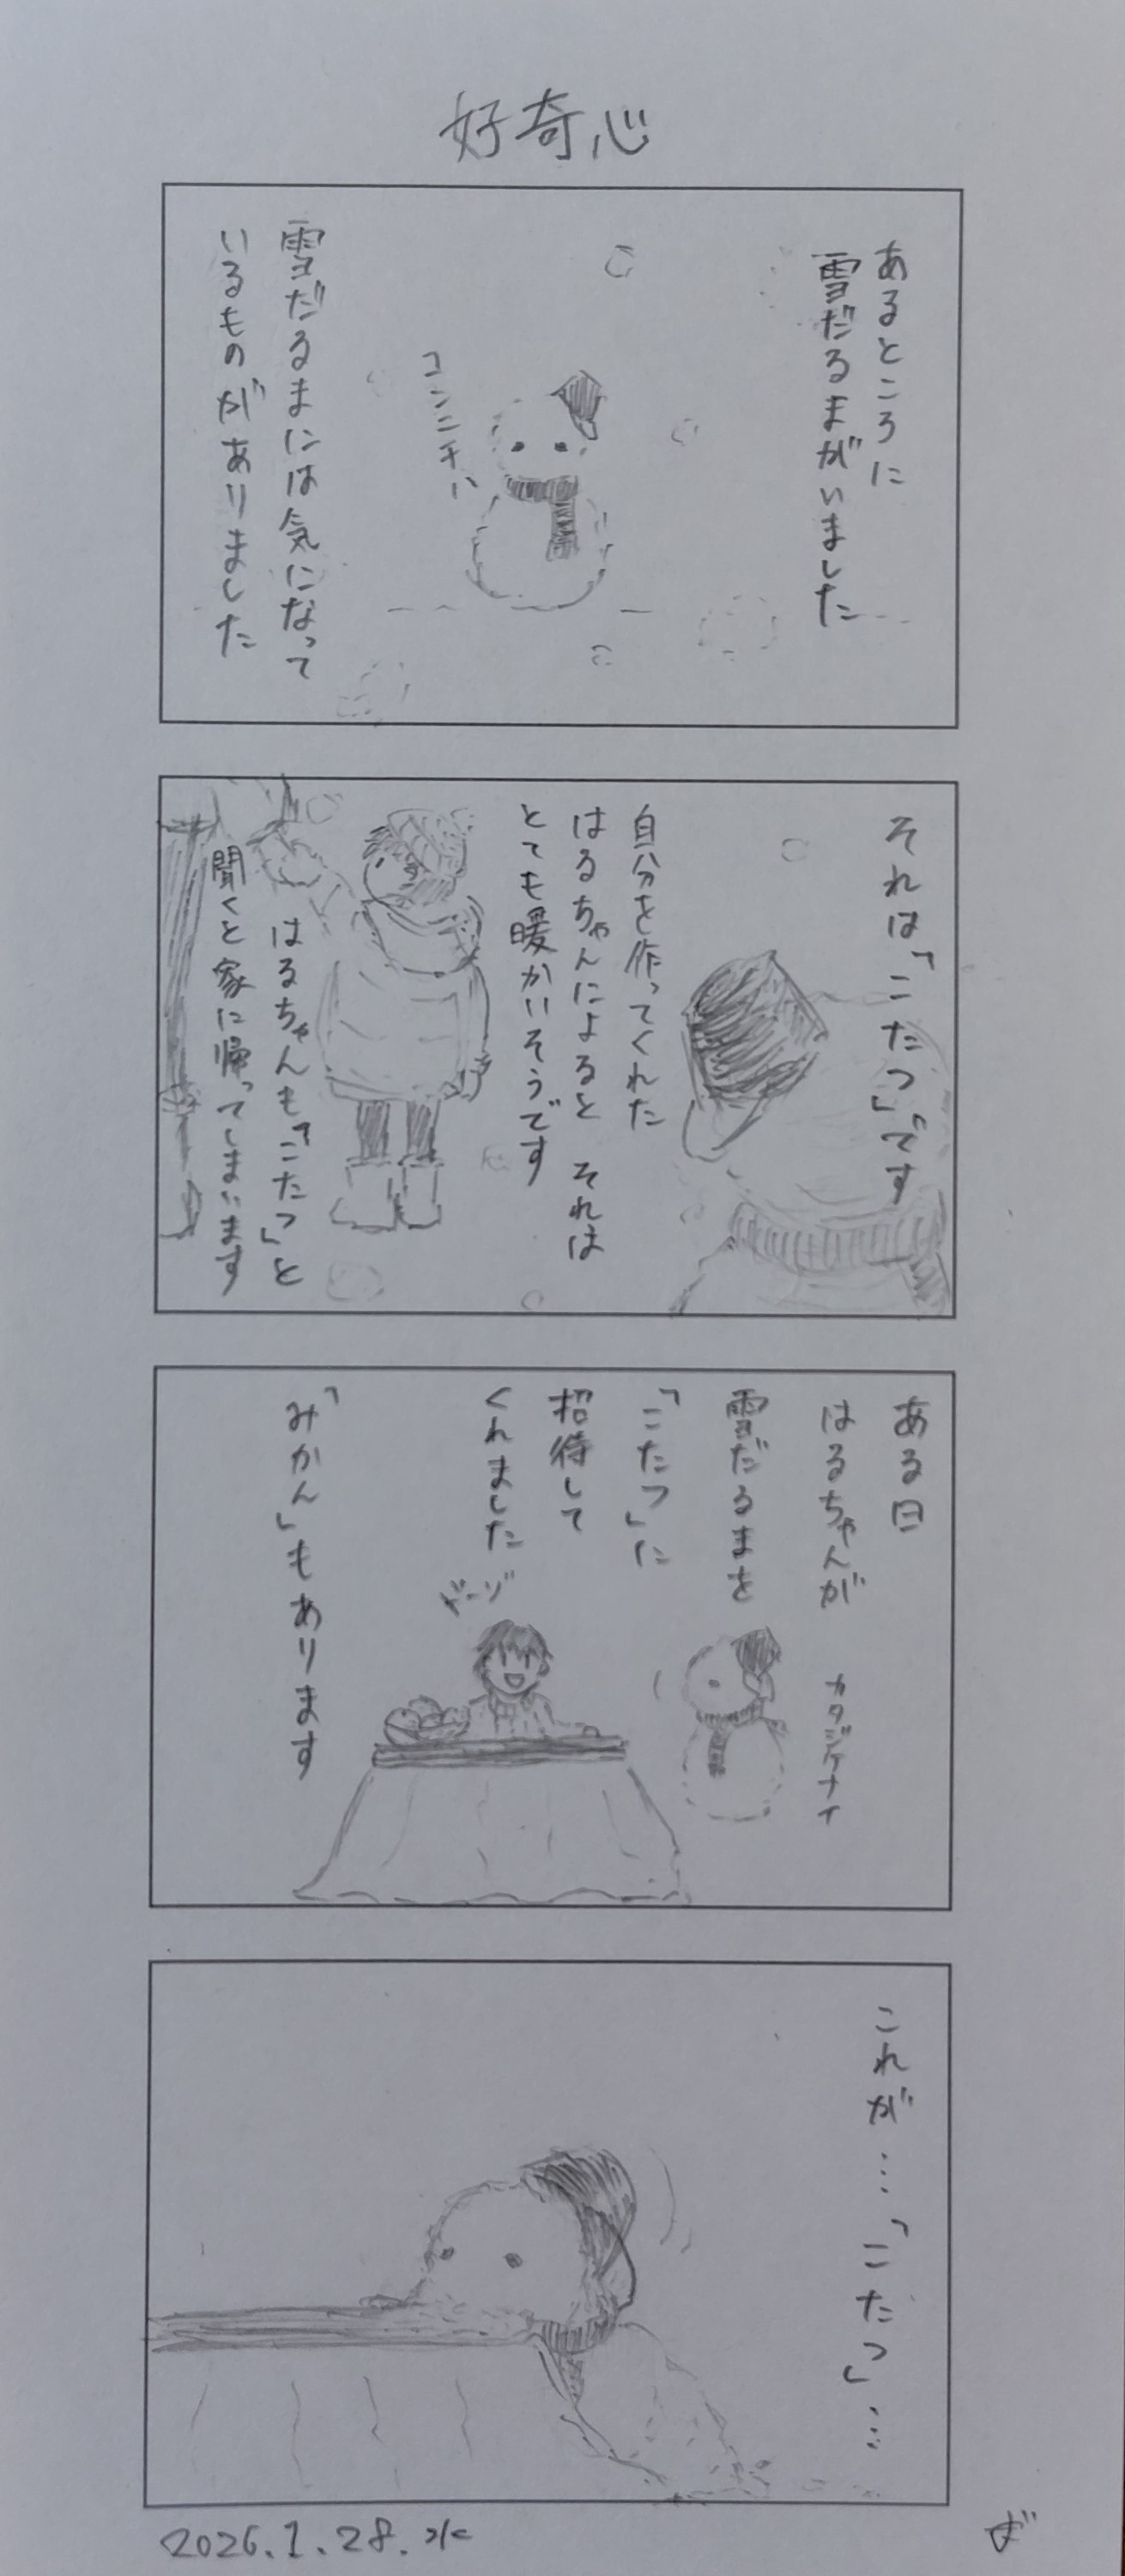 好奇心
あるところに
雪だるまがいました
コンニチハ
雪だるまには気になって
いるものがありました
それは「こたつ」です
自分を作ってくれた
はるちゃんによると それは
とても暖かいそうです
はるちゃんも「こたつ」と
聞くと家に帰ってしまいます
ある日
はるちゃんが
雪だるまを
「こたつ」に
招待して
くれました
カタジケナイ
ドーゾ
「みかん」もあります
これが…「こたつ」…
2026.1.28.水